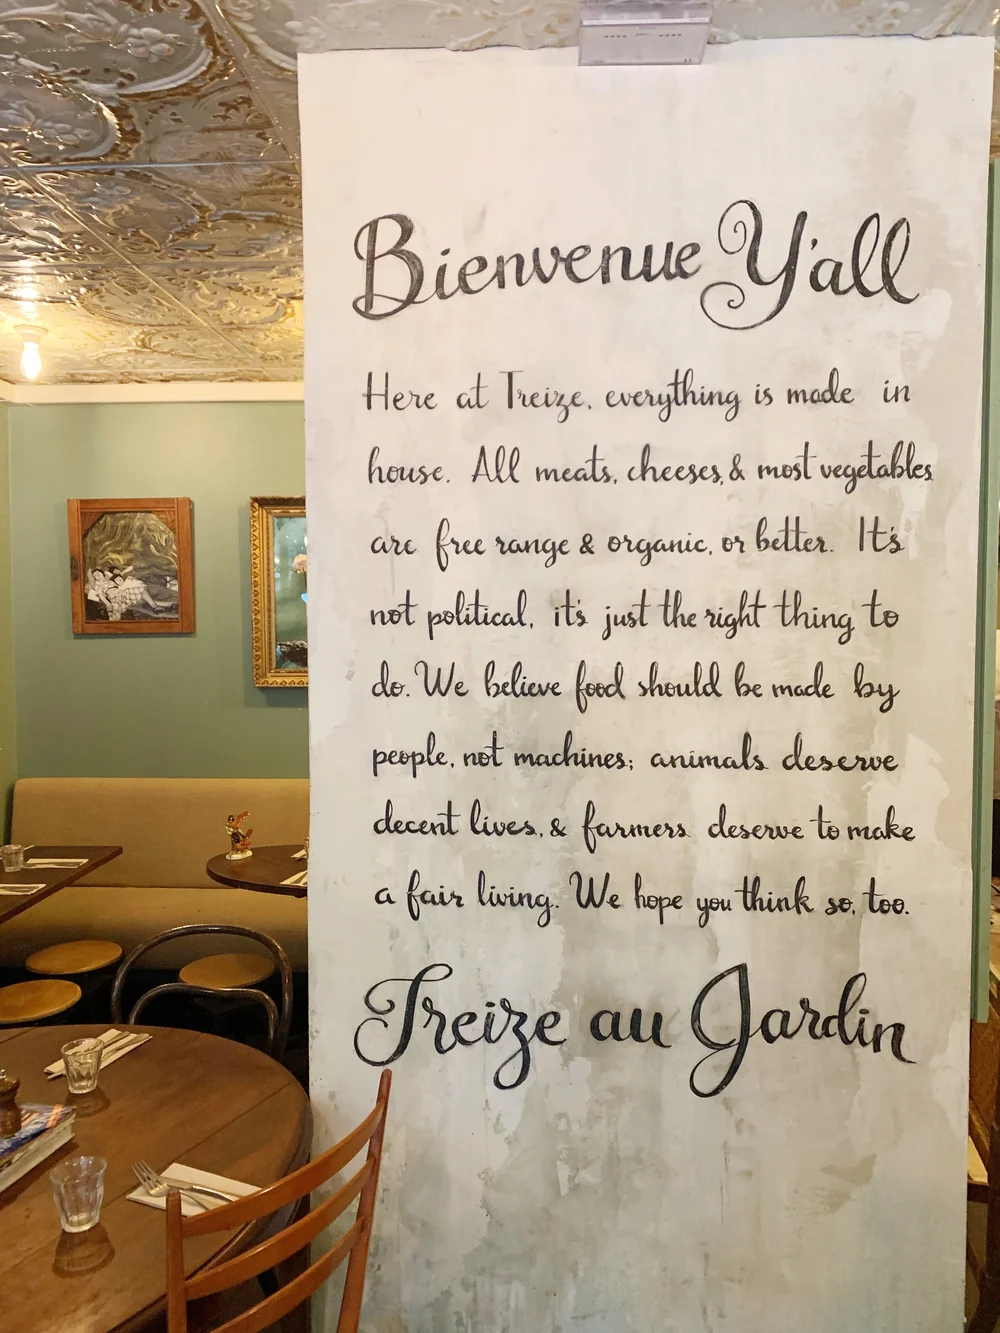 Bienvenue Y'all
Here at Treize, everything is made in
house. All meats, cheeses, & most vegetables
are free range & organic, or better. It's
not political, it's just the right thing to
do. We believe food should be made by
people, not machines; animals deserve
decent lives, & farmers deserve to make
a fair living. We hope you think so, too.
Treize au Jardin